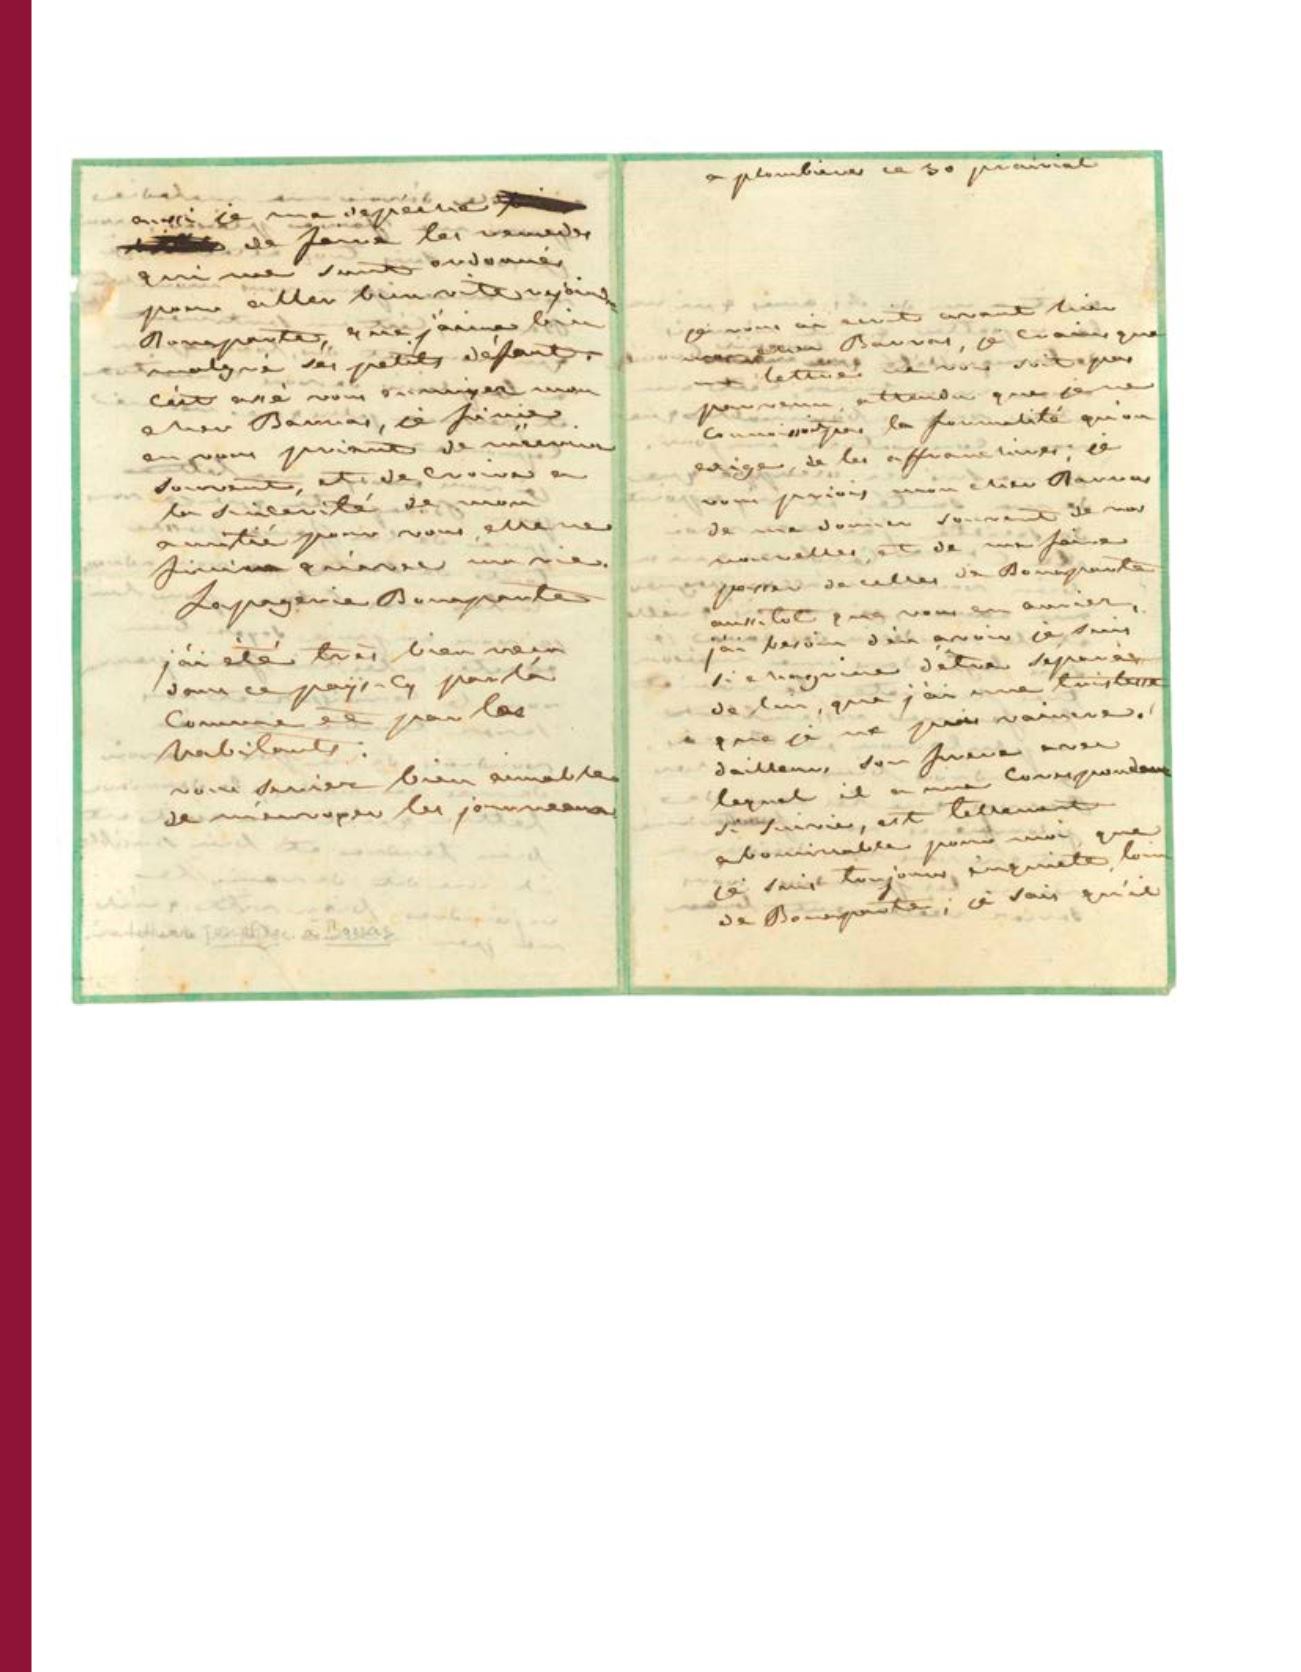 a plombieres ce 30 prairial
je vous ai ecrit avant hier
mon cher Barras, je crains que
ma lettre ne vous soit pas
parvenu, attendu que je ne
connoissoit pas la formalité qu'on
exige, de les affranchires, je
vous priois mon cher Barras
de me donner souvent de vos
nouvelles, et de me faire
passer de celles de Bonaparte
aussitot que vous en auriez,
j'ai besoin d'en avoir je suis
si chagrine d'être separée
de lui, que j'ai une tristesse
que je ne puis vaincre.
d'ailleurs, son frere avec
lequel il a une correspondance
si suivie, est tellement
abominable pour moi, que
je suis toujours inquiete, loin
de Bonaparte; je sais qu'il
aussi je me depeche
de faire les remedes
qui me sont ordonnés
pour aller bien vite rejoindre
Bonaparte, que j'aime bien
malgré ses petits défauts.
c'est assé vous ennuyer mon
cher Barras, je finie
en vous priant de m'écrire
souvent, et de croire en
la sincerité de mon
amitié pour vous, elle ne
finira qu'avec ma vie.
Lapagerie Bonaparte
j'ai été tres bien recu
dans ce pays-cy par la
Commune et par les
habitants.
vous seriez bien aimable
de m'envoyer les journeaux